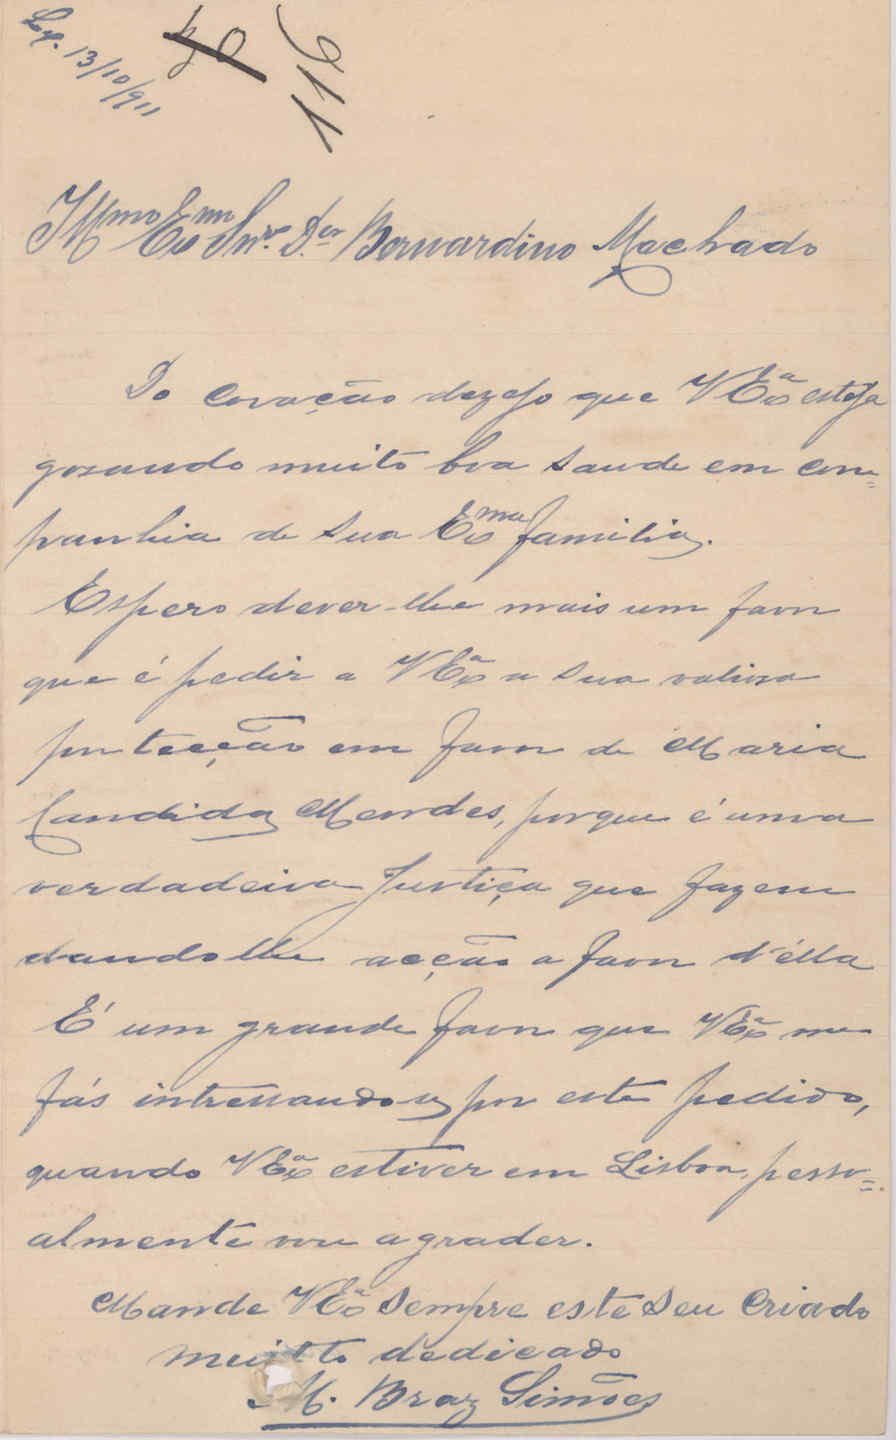 13/10/911
911
Illmo Exmo Snr. Dor Bernardino Machado
Do Coração dezejo que VExa esteja
gosando muito boa saude em com=
panhia de sua Exma familia.
Espero dever-lhe mais um favor
que é pedir a VExa a sua valiosa
protecção em favor de Maria
Candida Mendes, porque é uma
verdadeira Justiça que fazem
dando lhe acção a favor d'élla
É um grande favor que VExa me
fás intressando se por este pedido,
quando VExa estiver em Lisboa, pesso=
almente vou agrader.
Mande VExa sempre este seu Criado
muitto dedicado
M. Braz Simões